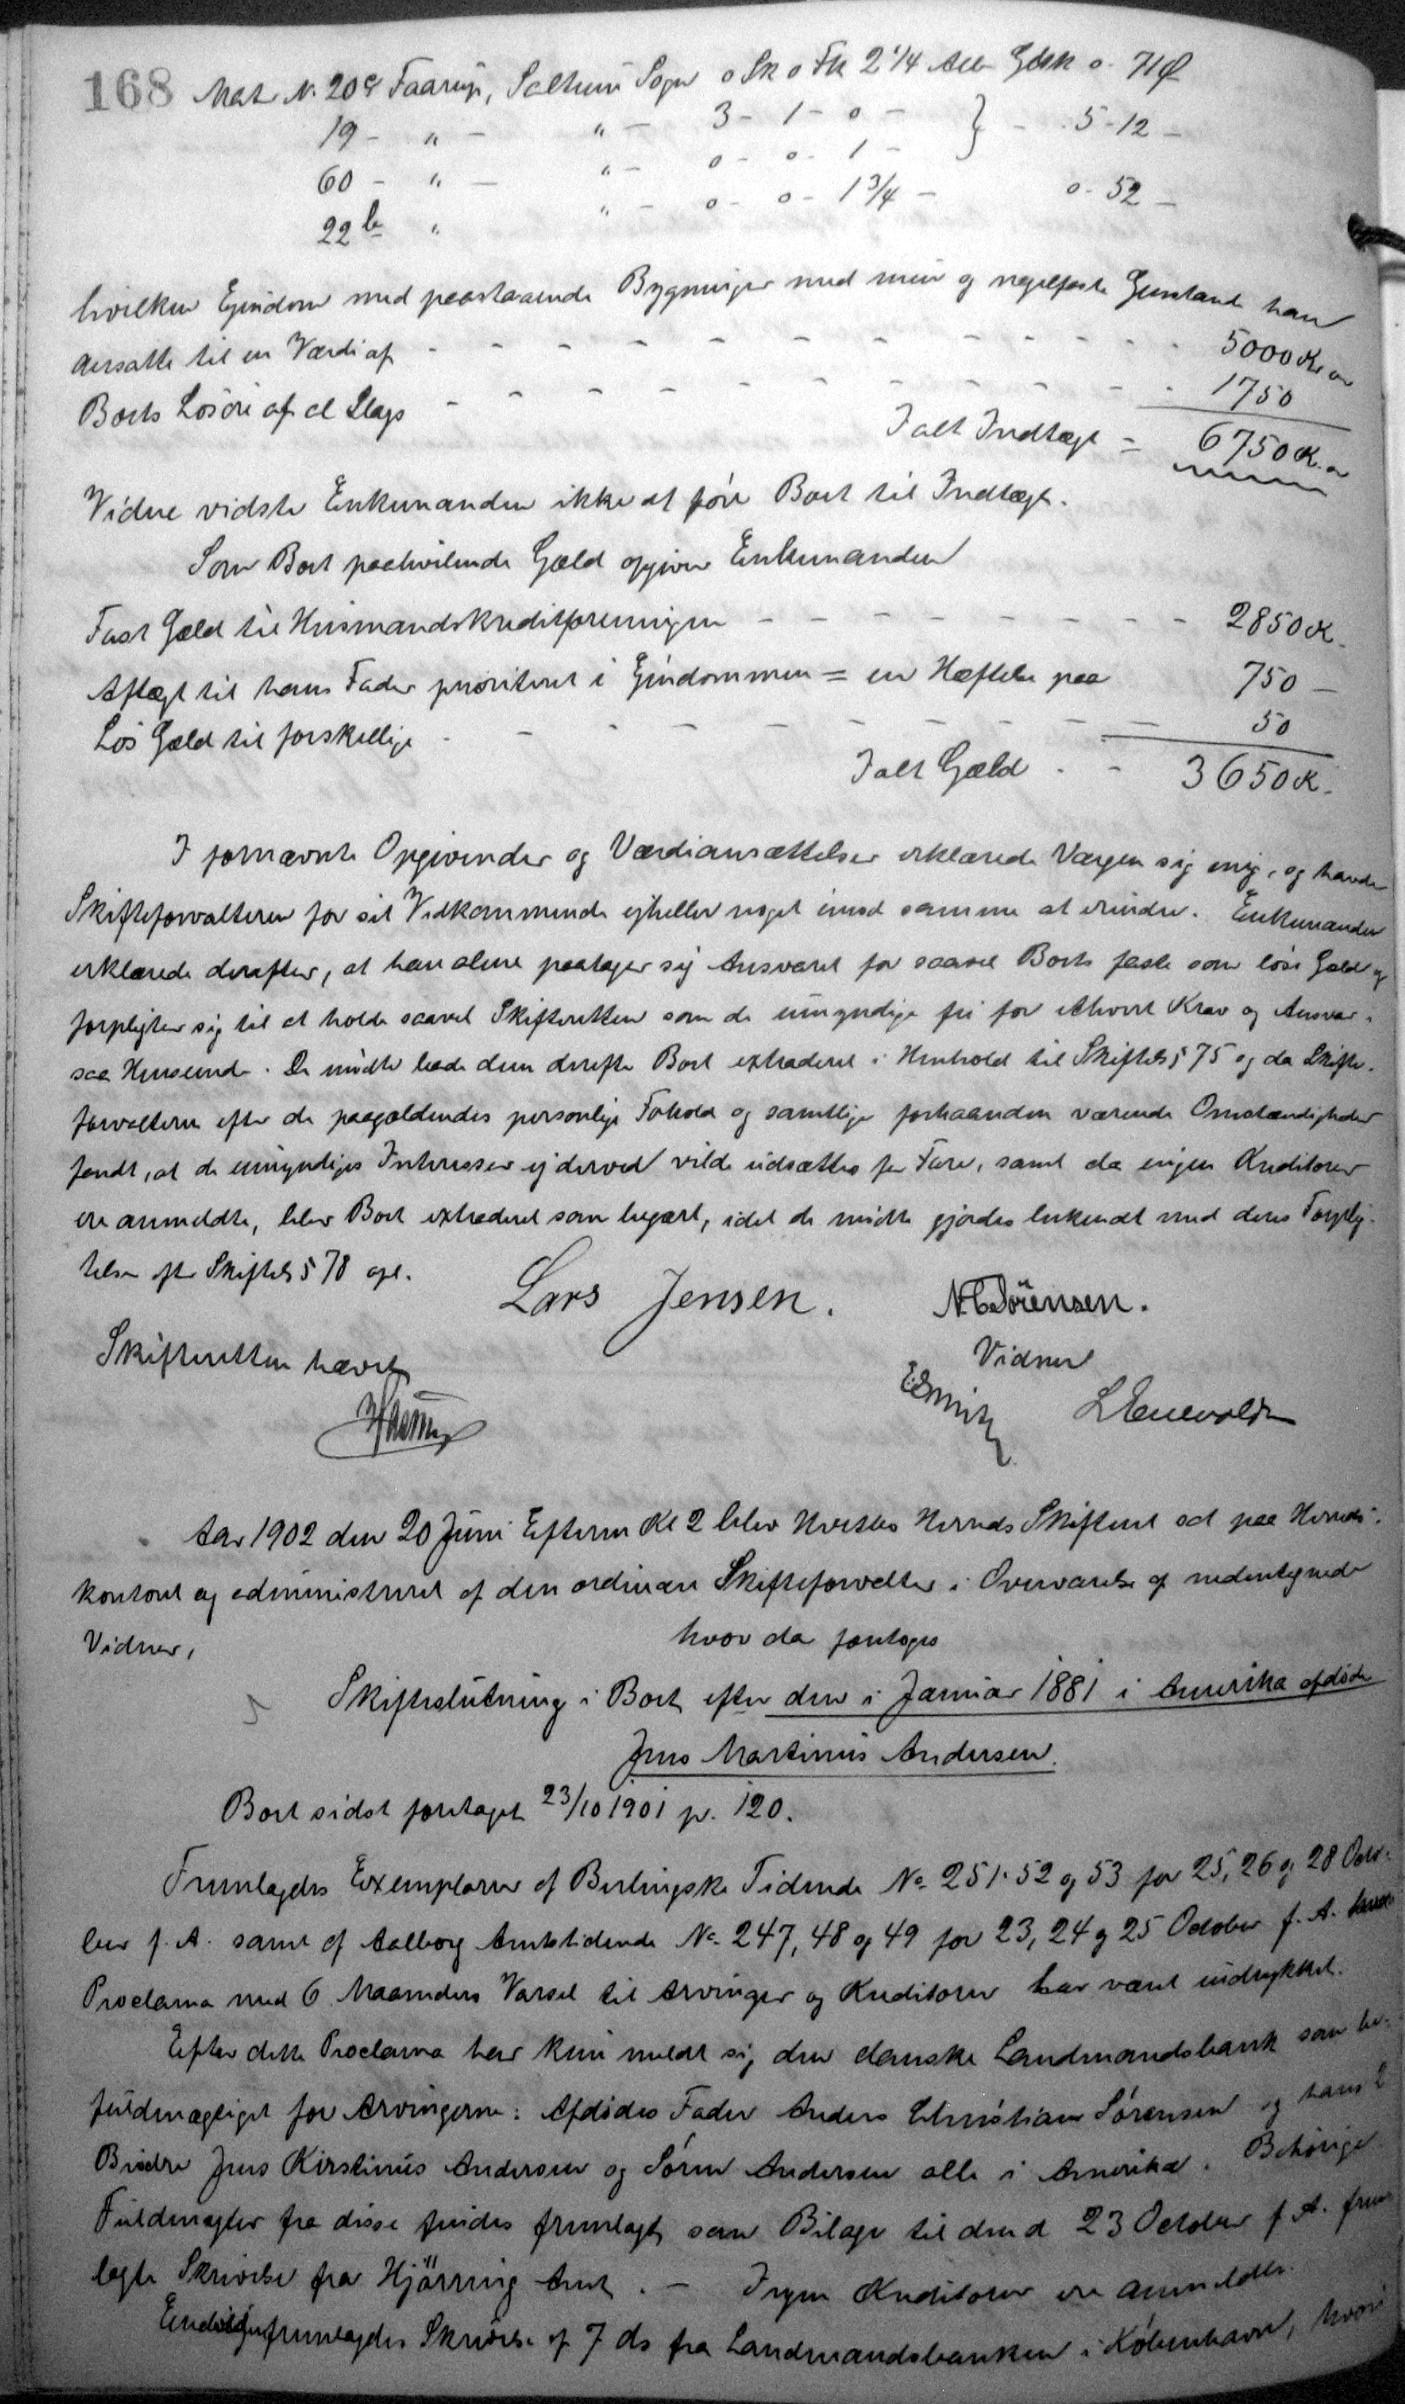 168 Mat N. 20e Faarup, Saltum Sogn 0 Sk 0 Fk 2 1/4 Alb Gdsk 0- 71 Ø
19 - " - " - 3 - 1 - 0 - } - 5 - 12 -
60 - " - " - 0 - 0 - 1 -
22 b " " - 0 - 0 - 1 3/4 - 0 - 52 -
hvilken Ejendom med paastaaende Bygninger med mur og nagelfaste Genstande han
ansatte til en Værdi af - - - - 5000 Kr
Boets Løsøre af al Slags - - - - 1750
Ialt Indtægt = 6750 K.
Videre vidste Enkemanden ikke at føre Boet til Indtægt.
Som Boet paahvilende Gæld opgiver Enkemanden
Fast Gæld til Husmandskreditforeningen - - - - 2850 K.
Aftægt til hans Fader prioriteret i Ejendommen = en Hæftelse paa 750 -
Løs Gæld til forskellige - - - - 50
Ialt Gæld - - 3650 K.
I fornævnte Opgivender og Værdiansættelser erklærede Værgen sig enig, og havde
Skifteforvalteren for sit Vedkommende ejheller noget imod samme at erindre. Enkemanden
erklærede derefter, at han alene paatager sig Ansvaret for saavel Boets faste som løse Gæld og
forpligter sig til at holde saavel Skifteretten som de umyndige fri for ethvert Krav og Ansvar i
saa Henseende. De mødte bade dem derefter Boet extraderet i Henhold til Skiftels § 75 og da Skifte-
forvalteren efter de paagældendes personlige Forhold og samtlige forhaanden værende Omstændigheder
fandt, at de umyndiges Interesser ej derved vilde udsættes for Fare, samt da ingen Kreditorer
ere anmeldte, blev Boet extraderet som begært, idet de mødte gjordes bekendt med deres Forplig-
telser efter Skiftels § 78 opl.
Lars Jensen. N C Sørensen.
Skifteretten hævet
Vidner
L Enevoldsen
Aar 1902 den 20 Juni Efterm Kl 2 blev Hvetbo Herreds Skifteret sat paa Herreds-
kontoret og administreret af den ordinære Skifteforvalter i Overværelse af nedentegnede
Vidner,
hvor da foretoges
Skifteslutning i Boet efter den i Januar 1881 i Amerika afdøde
Jens Martinus Andersen.
Boet sidst foretaget 23/10 1901 p. 120.
Fremlagdes Exemplarer af Berlingske Tidende No 251. 52 og 53 for 25, 26 og 28 Octo-
ber f. A. samt af Aalborg Amtstidende No 247, 48 og 49 for 23, 24 og 25 October f. A. hvori
Proclama med 6 Maaneders Varsel til Arvinger og Kreditorer har været indrykket.
Efter dette Proclama har kun meldt sig den danske Landmandsbank som be-
fuldmægtiget for Arvingerne: Afdødes Fader Anders Christian Sørensen og hans 2
Brødre Jens Kirstinus Andersen og Søren Andersen alle i Amerika. Behørige
Fuldmagter fra disse findes fremlagt som Bilage til den d 23 October f. A. frem-
lagte Skrivelse fra Hjørring Amt. - Ingen Kreditorer ere anmeldte.
Endvidere fremlagdes Skrivelse af 7 ds fra Landmandsbanken i København, hvori